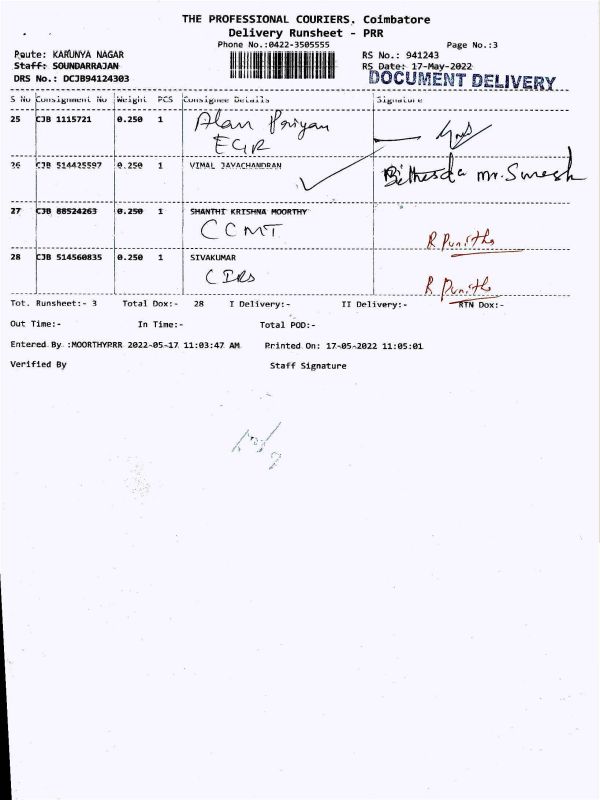 THE PROFESSIONAL COURIERS, Coimbatore
Delivery Runsheet - PRR
Phone No.:0422-3505555
Page No.:3
Route: KARUNYA NAGAR
RS No.: 941243
Staff: SOUNDARRAJAN
RS Date: 17-May-2022
DRS No.: DCJB94124303
DOCUMENT DELIVERY
S No Consignment No Weight PCS Consignee Details Signature
25 CJB 1115721 0.250 1 Alan Priyan
EGR
26 CJB 514425597 0.250 1 VIMAL JAYACHANDRAN Bethesda mr. Suresh
27 CJB 88524263 0.250 1 SHANTHI KRISHNA MOORTHY
CCMT R Punitha
28 CJB 514560835 0.250 1 SIVAKUMAR
R Punitha
Tot. Runsheet:- 3 Total Dox:- 28 I Delivery:- II Delivery:- RTN Dox:-
Out Time:- In Time:- Total POD:-
Entered By :MOORTHYPRR 2022-05-17 11:03:47 AM Printed On: 17-05-2022 11:05:01
Verified By Staff Signature